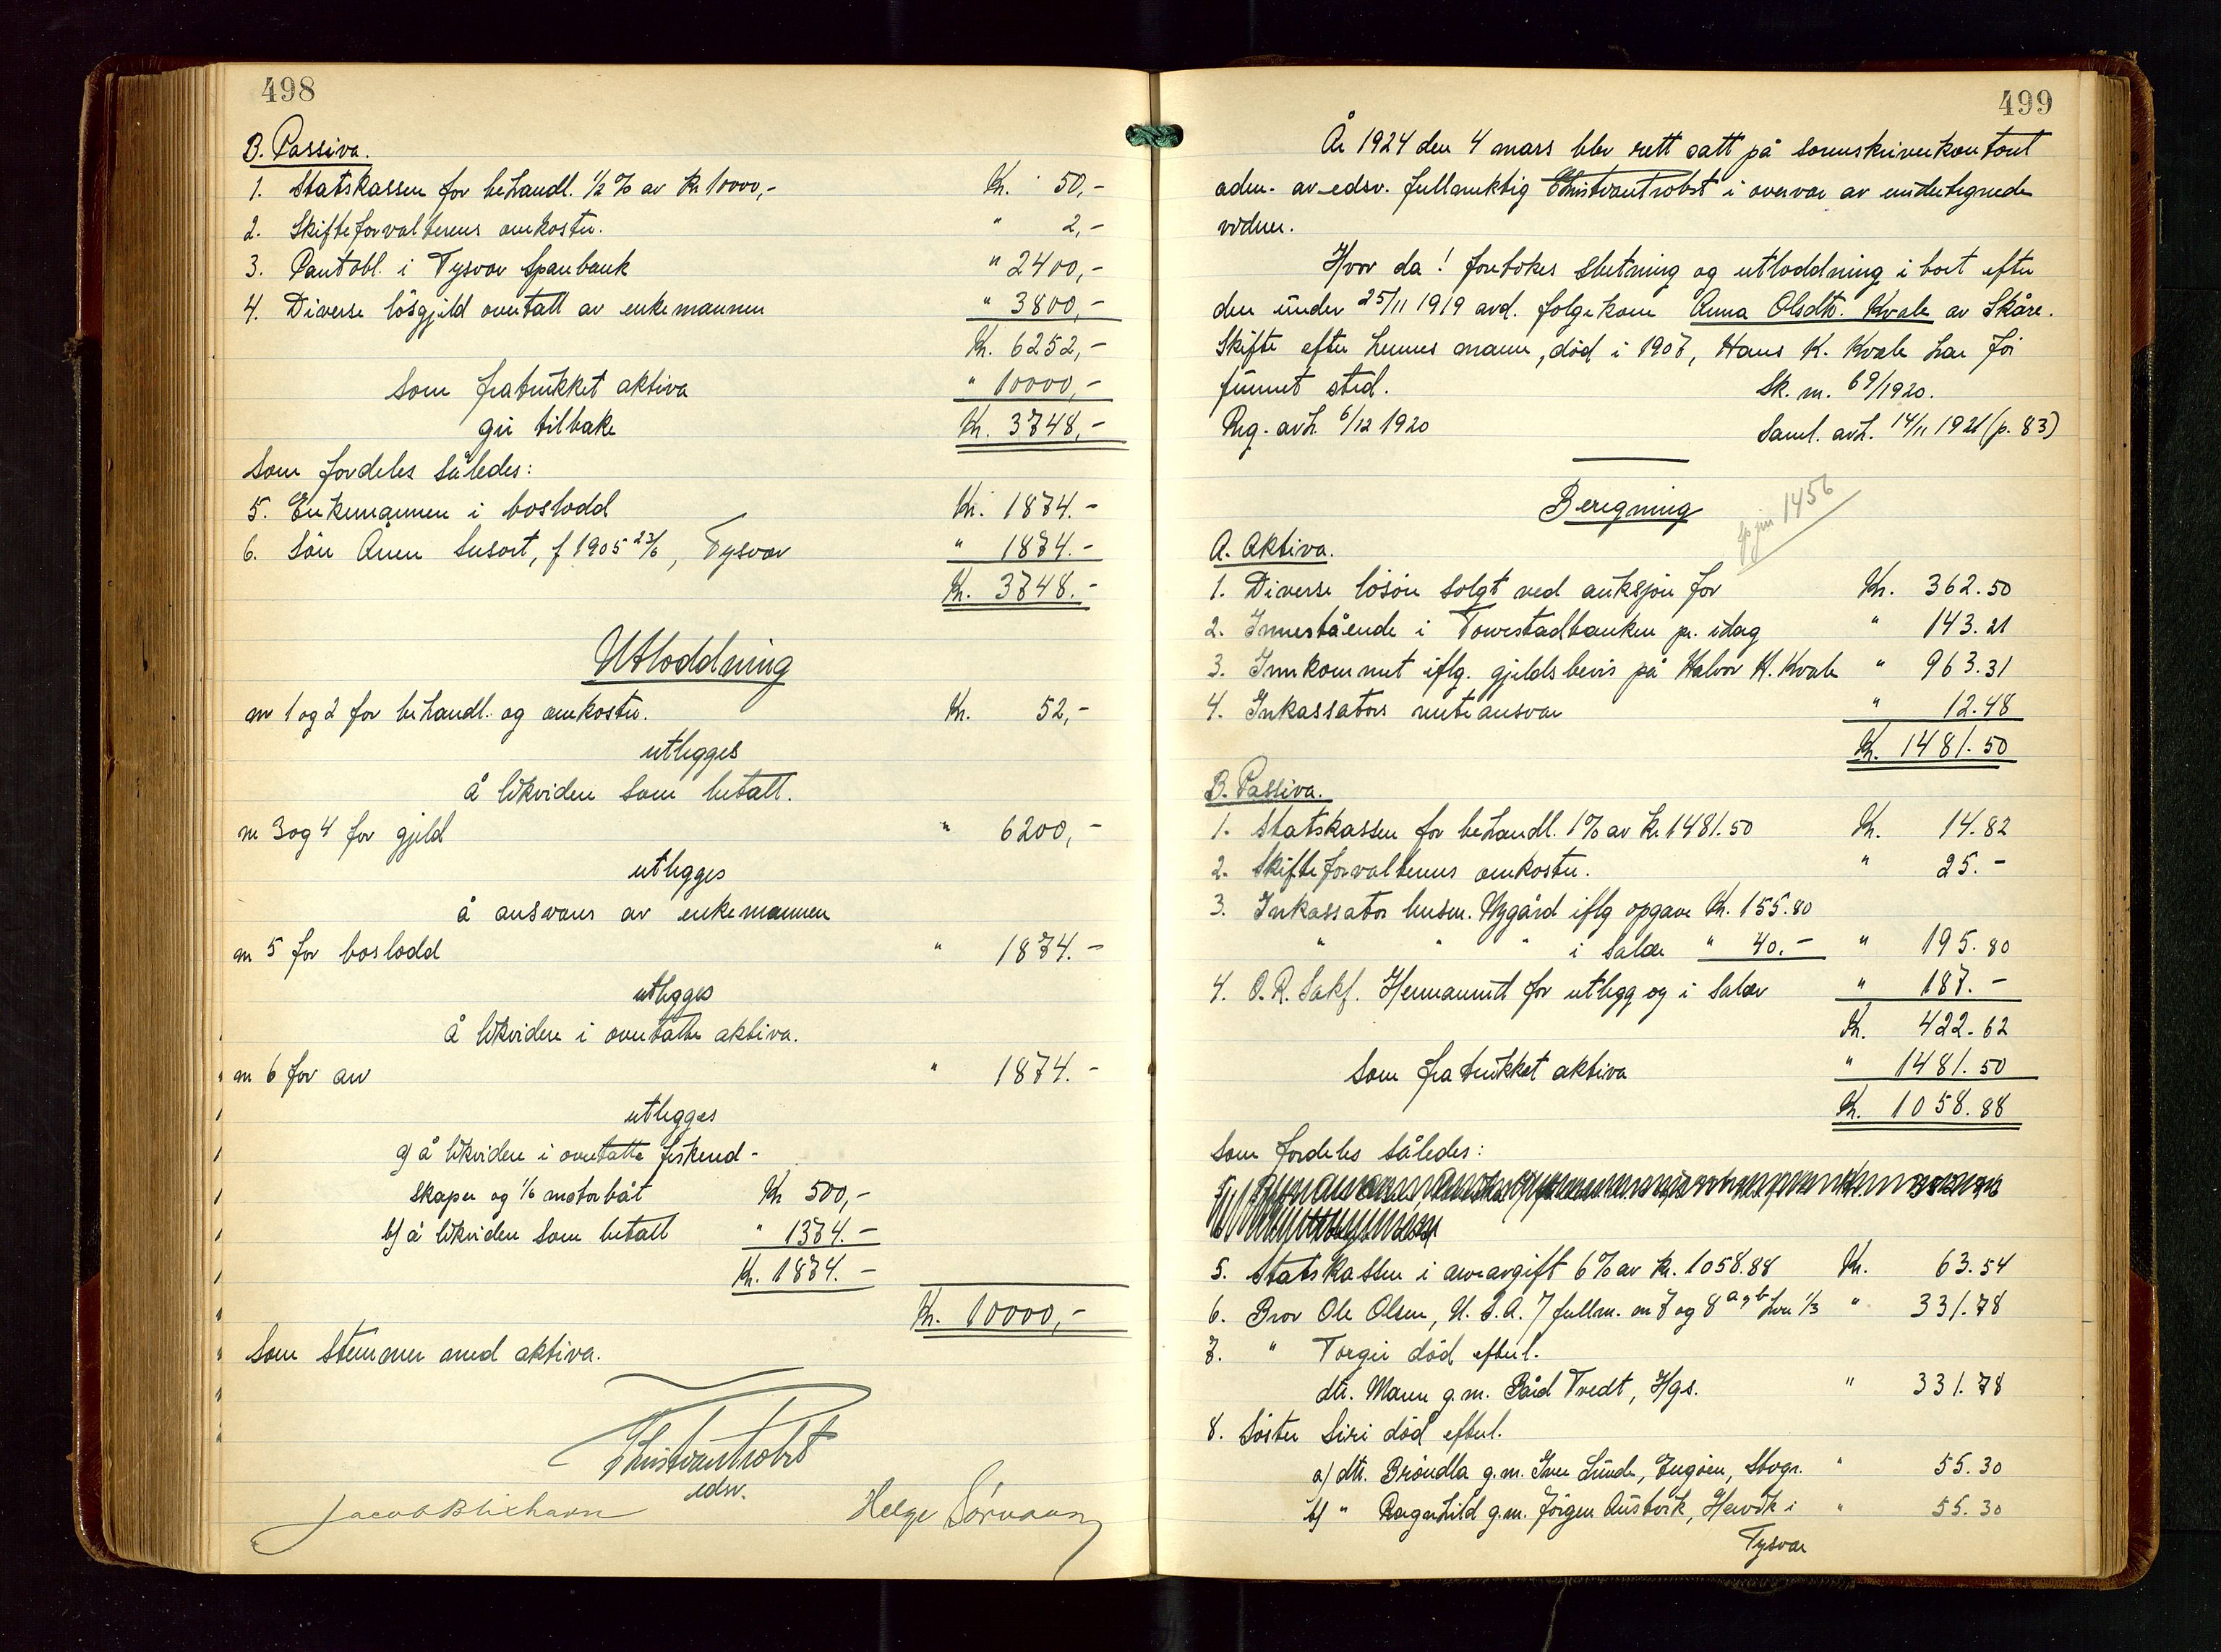 498
B. Passiva.
1. Statskassen for behandl. 1/2 % av kr 10000,- Kr. 50,-
2. Skifteforvalterens omkostn. " 2,-
3. Pantobl. i Tysvær Sparebank " 2400,-
4. Diverse lösgjeld overtatt av enkemannen " 3800,-
Kr. 6252,-
som fratrukket aktiva " 10000,-
gir tilbake Kr. 3748,-
som fordeles således:
5. Enkemannen i boslodd Kr. 1874.-
6. Sön Ånen Susort, f 1905 23/6, Tysvær " 1874.-
Kr. 3748.-
Utloddning
nr 1 og 2 for behandl. og omkostn. Kr. 52,-
utlegges
å likvidere som betalt.
nr 3 og 4 for gjeld " 6200,-
utlegges
å ansvares av enkemannen
nr 5 for boslodd " 1874.-
utlegges
å likvidere i overtatte aktiva.
nr 6 for arv " 1874.-
utlegges
a) å likvidere i overtatte fiskered-
skaper og 1/6 motorbåt Kr 500,-
b) å likvidere som betalt " 1374.-
Kr. 1874.-
Kr. 10000,-
som stemmer med aktiva.
edsv.
Jacob Blixhavn Helge Sörvaag
499
År 1924 den 4 mars blev rett satt på sorenskriverkontoret
adm. av edsv. fullmektig i overvær av undertegnede
vidner.
Hvor da! foretokes slutning og utloddning i boet efter
den under 25/11 1919 avd. folgekone Anna Olsdtr. Kvale av Skåre.
Skifte efter hennes mann, död i 1907, Hans K. Kvale har för
funnet sted. Sk. m. 69/1920.
Reg. avh. 6/12 1920 Saml. avh. 14/11 1921 (p. 83)
Beregning
1456
A. Aktiva.
1. Diverse lösöre solgt ved auksjon for Kr. 362.50
2. Innestående i Torvestadbanken pr. idag " 143.21
3. Innkommet iflg. gjeldsbevis på Halvor H. Kvale " 963.31
4. Inkassators renteansvar " 12.48
Kr. 1481.50
B. Passiva.
1. Statskassen for behandl. 1% av kr 1481.50 Kr. 14.82
2. Skifteforvalterens omkostn. " 25.-
3. Inkassator lensm. Nygård iflg opgave Kr. 155.80
" " " i salær " 40.- " 195.80
4. O.R. Sakf. for utlegg og i salær " 187.-
Kr. 422.62
som fratrukket aktiva " 1481.50
Kr. 1058.88
som fordeles således:
5. Statskassen i arveavgift 6% av kr. 1058.88 Kr. 63.54
6. Bror Ole Olsen, U.S.A. / fullm. nr 7 og 8 a og b hver 1/3 " 331.78
7. " Torger död efterl.
dtr. Maren g.m. Bård Tvedt, Hgs. " 331.78
8. Söster Siri död efterl.
a) dtr. Bröndla g.m. Iver Lunde, Engöen, Stvgr. " 55.30
b) " Ragnhild g.m. Jörgen Austvik, Hervik i " 55.30
Tysvær